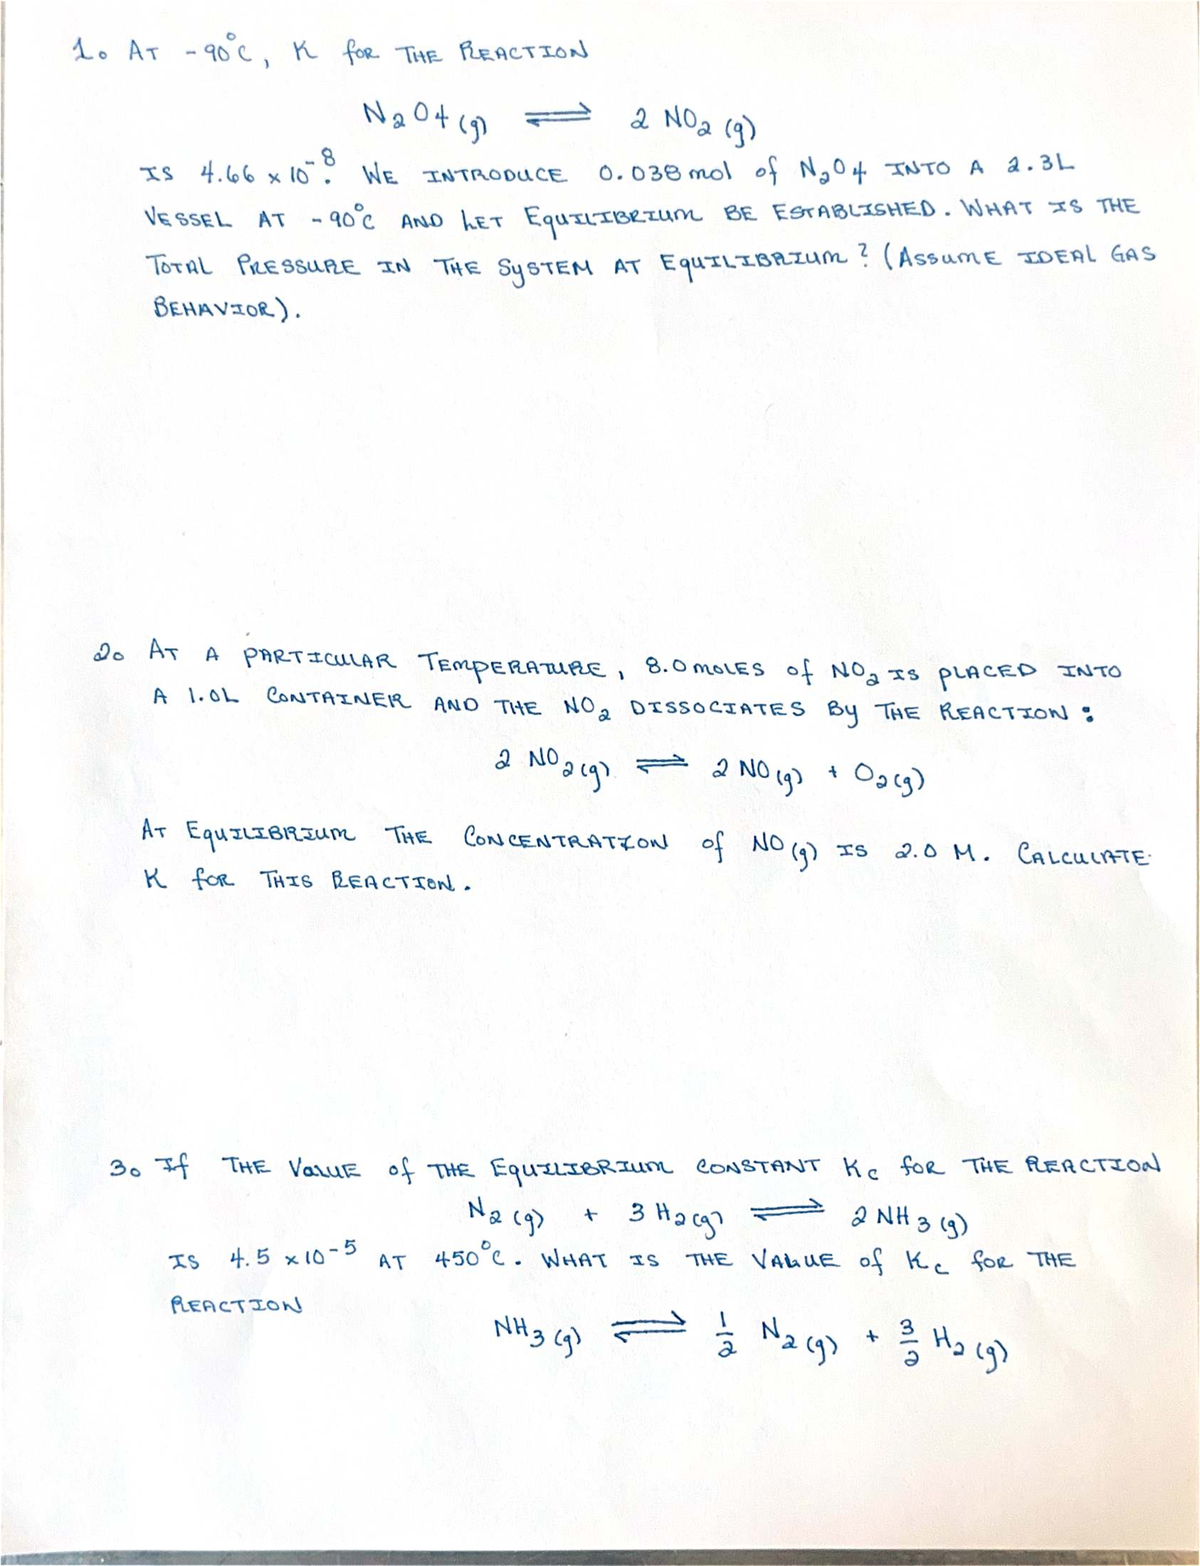 1. AT -90°C, K for THE REACTION
N2O4(g) ⇌ 2 NO2 (g)
IS 4.66 x 10^-8. WE INTRODUCE 0.038 mol of N2O4 INTO A 2.3L
VESSEL AT -90°C AND LET EQUILIBRIUM BE ESTABLISHED. WHAT IS THE
TOTAL PRESSURE IN THE SYSTEM AT EQUILIBRIUM? (ASSUME IDEAL GAS
BEHAVIOR).
2. AT A PARTICULAR TEMPERATURE, 8.0 MOLES of NO2 IS PLACED INTO
A 1.0L CONTAINER AND THE NO2 DISSOCIATES By THE REACTION:
2 NO2(g) ⇌ 2 NO(g) + O2(g)
AT EQUILIBRIUM THE CONCENTRATION of NO(g) IS 2.0 M. CALCULATE
K for THIS REACTION.
3. If THE VALUE of THE EQUILIBRIUM CONSTANT Kc for THE REACTION
N2 (g) + 3 H2(g) ⇌ 2 NH3(g)
IS 4.5 x 10^-5 AT 450°C. WHAT IS THE VALUE of Kc for THE
REACTION
NH3(g) ⇌ 1/2 N2(g) + 3/2 H2(g)